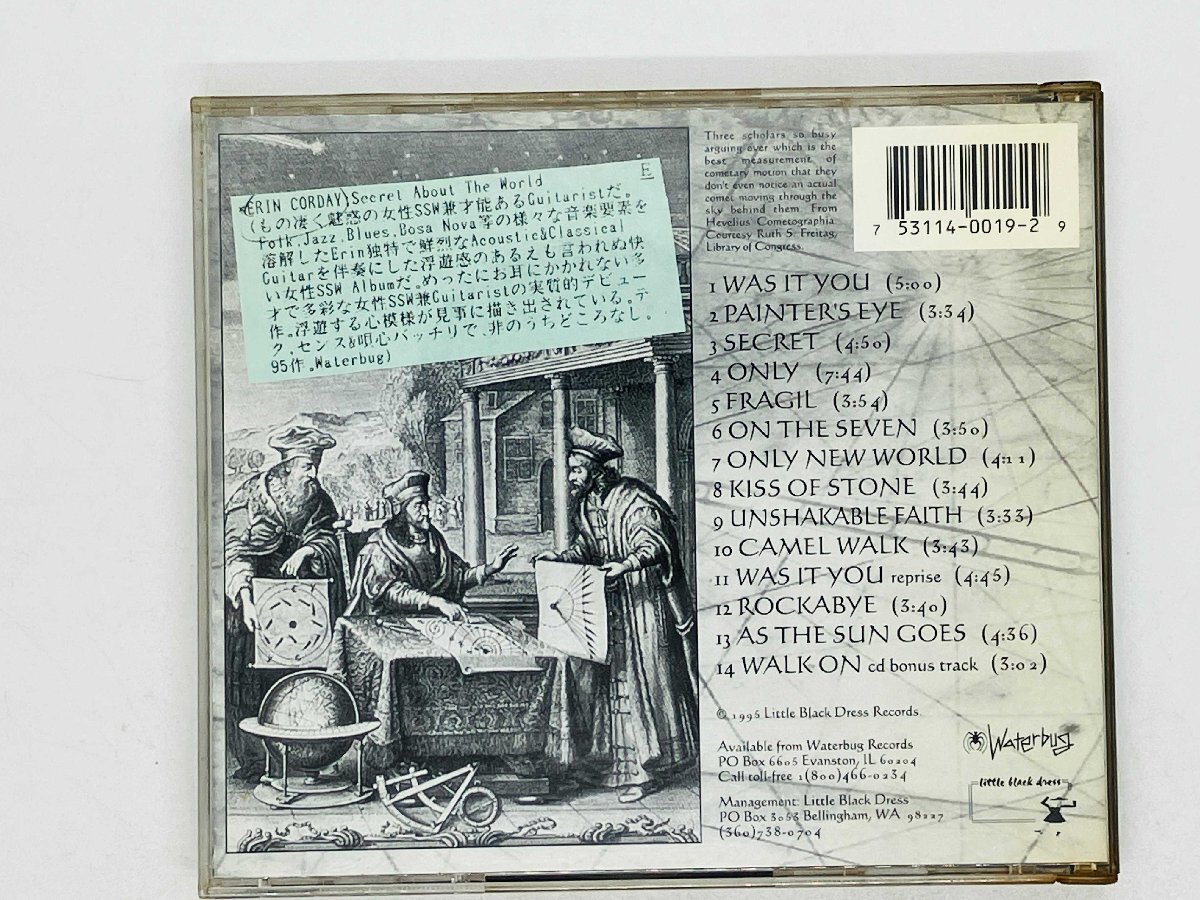 E
(ERIN CORDAY)Secret About The World
(もの凄く魅惑の女性SSW兼才能あるGuitaristだ。
Folk,Jazz,Blues,Bosa Nova等の様々な音楽要素を
溶解したErin独特で鮮烈なAcoustic&Classical
Guitarを伴奏にした浮遊感のあるえも言われぬ快
い女性SSW Albumだ。めったにお耳にかかれない多
才で多彩な女性SSW兼Guitaristの実質的デビュー
作。浮遊する心模様が見事に描き出されている。テ
ク,センス&唄心バッチリで、非のうちどころなし。
95作。Waterbug)
Three scholars so busy
arguing over which is the
best measurement of
cometary motion that they
don't even notice an actual
comet moving through the
sky behind them. From
Hevelius' Cometographia.
Courtesy Ruth S. Freitag,
Library of Congress.
7 53114-0019-2 9
1 WAS IT YOU (5:00)
2 PAINTER'S EYE (3:34)
3 SECRET (4:50)
4 ONLY (7:44)
5 FRAGIL (3:54)
6 ON THE SEVEN (3:50)
7 ONLY NEW WORLD (4:21)
8 KISS OF STONE (3:44)
9 UNSHAKABLE FAITH (3:33)
10 CAMEL WALK (3:43)
11 WAS IT YOU reprise (4:45)
12 ROCKABYE (3:40)
13 AS THE SUN GOES (4:36)
14 WALK ON cd bonus track (3:02)
© 1995 Little Black Dress Records.
Available from Waterbug Records
PO Box 6605 Evanston, IL 60204
Call toll-free 1(800)466-0234
Management: Little Black Dress
PO Box 3053 Bellingham, WA 98227
(360)738-0704
Waterbug
little black dress